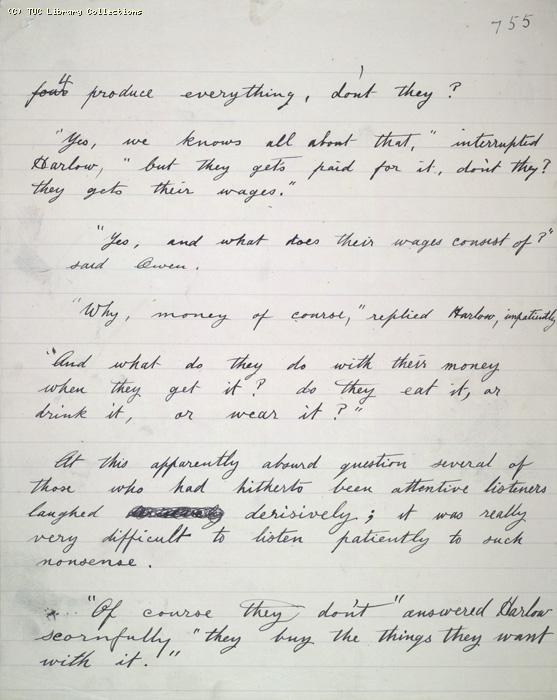 (C) TUC Library Collections
755
4 produce everything, don't they?
"Yes, we knows all about that," interrupted
Harlow, "but they gets paid for it, don't they?
they gets their wages."
"Yes, and what does their wages consist of?"
said Owen.
"Why, money of course," replied Harlow, impatiently
"And what do they do with their money
when they get it? do they eat it, or
drink it, or wear it?"
At this apparently absurd question several of
those who had hitherto been attentive listeners
laughed derisively; it was really
very difficult to listen patiently to such
nonsense.
"Of course they don't" answered Harlow
scornfully "they buy the things they want
with it."